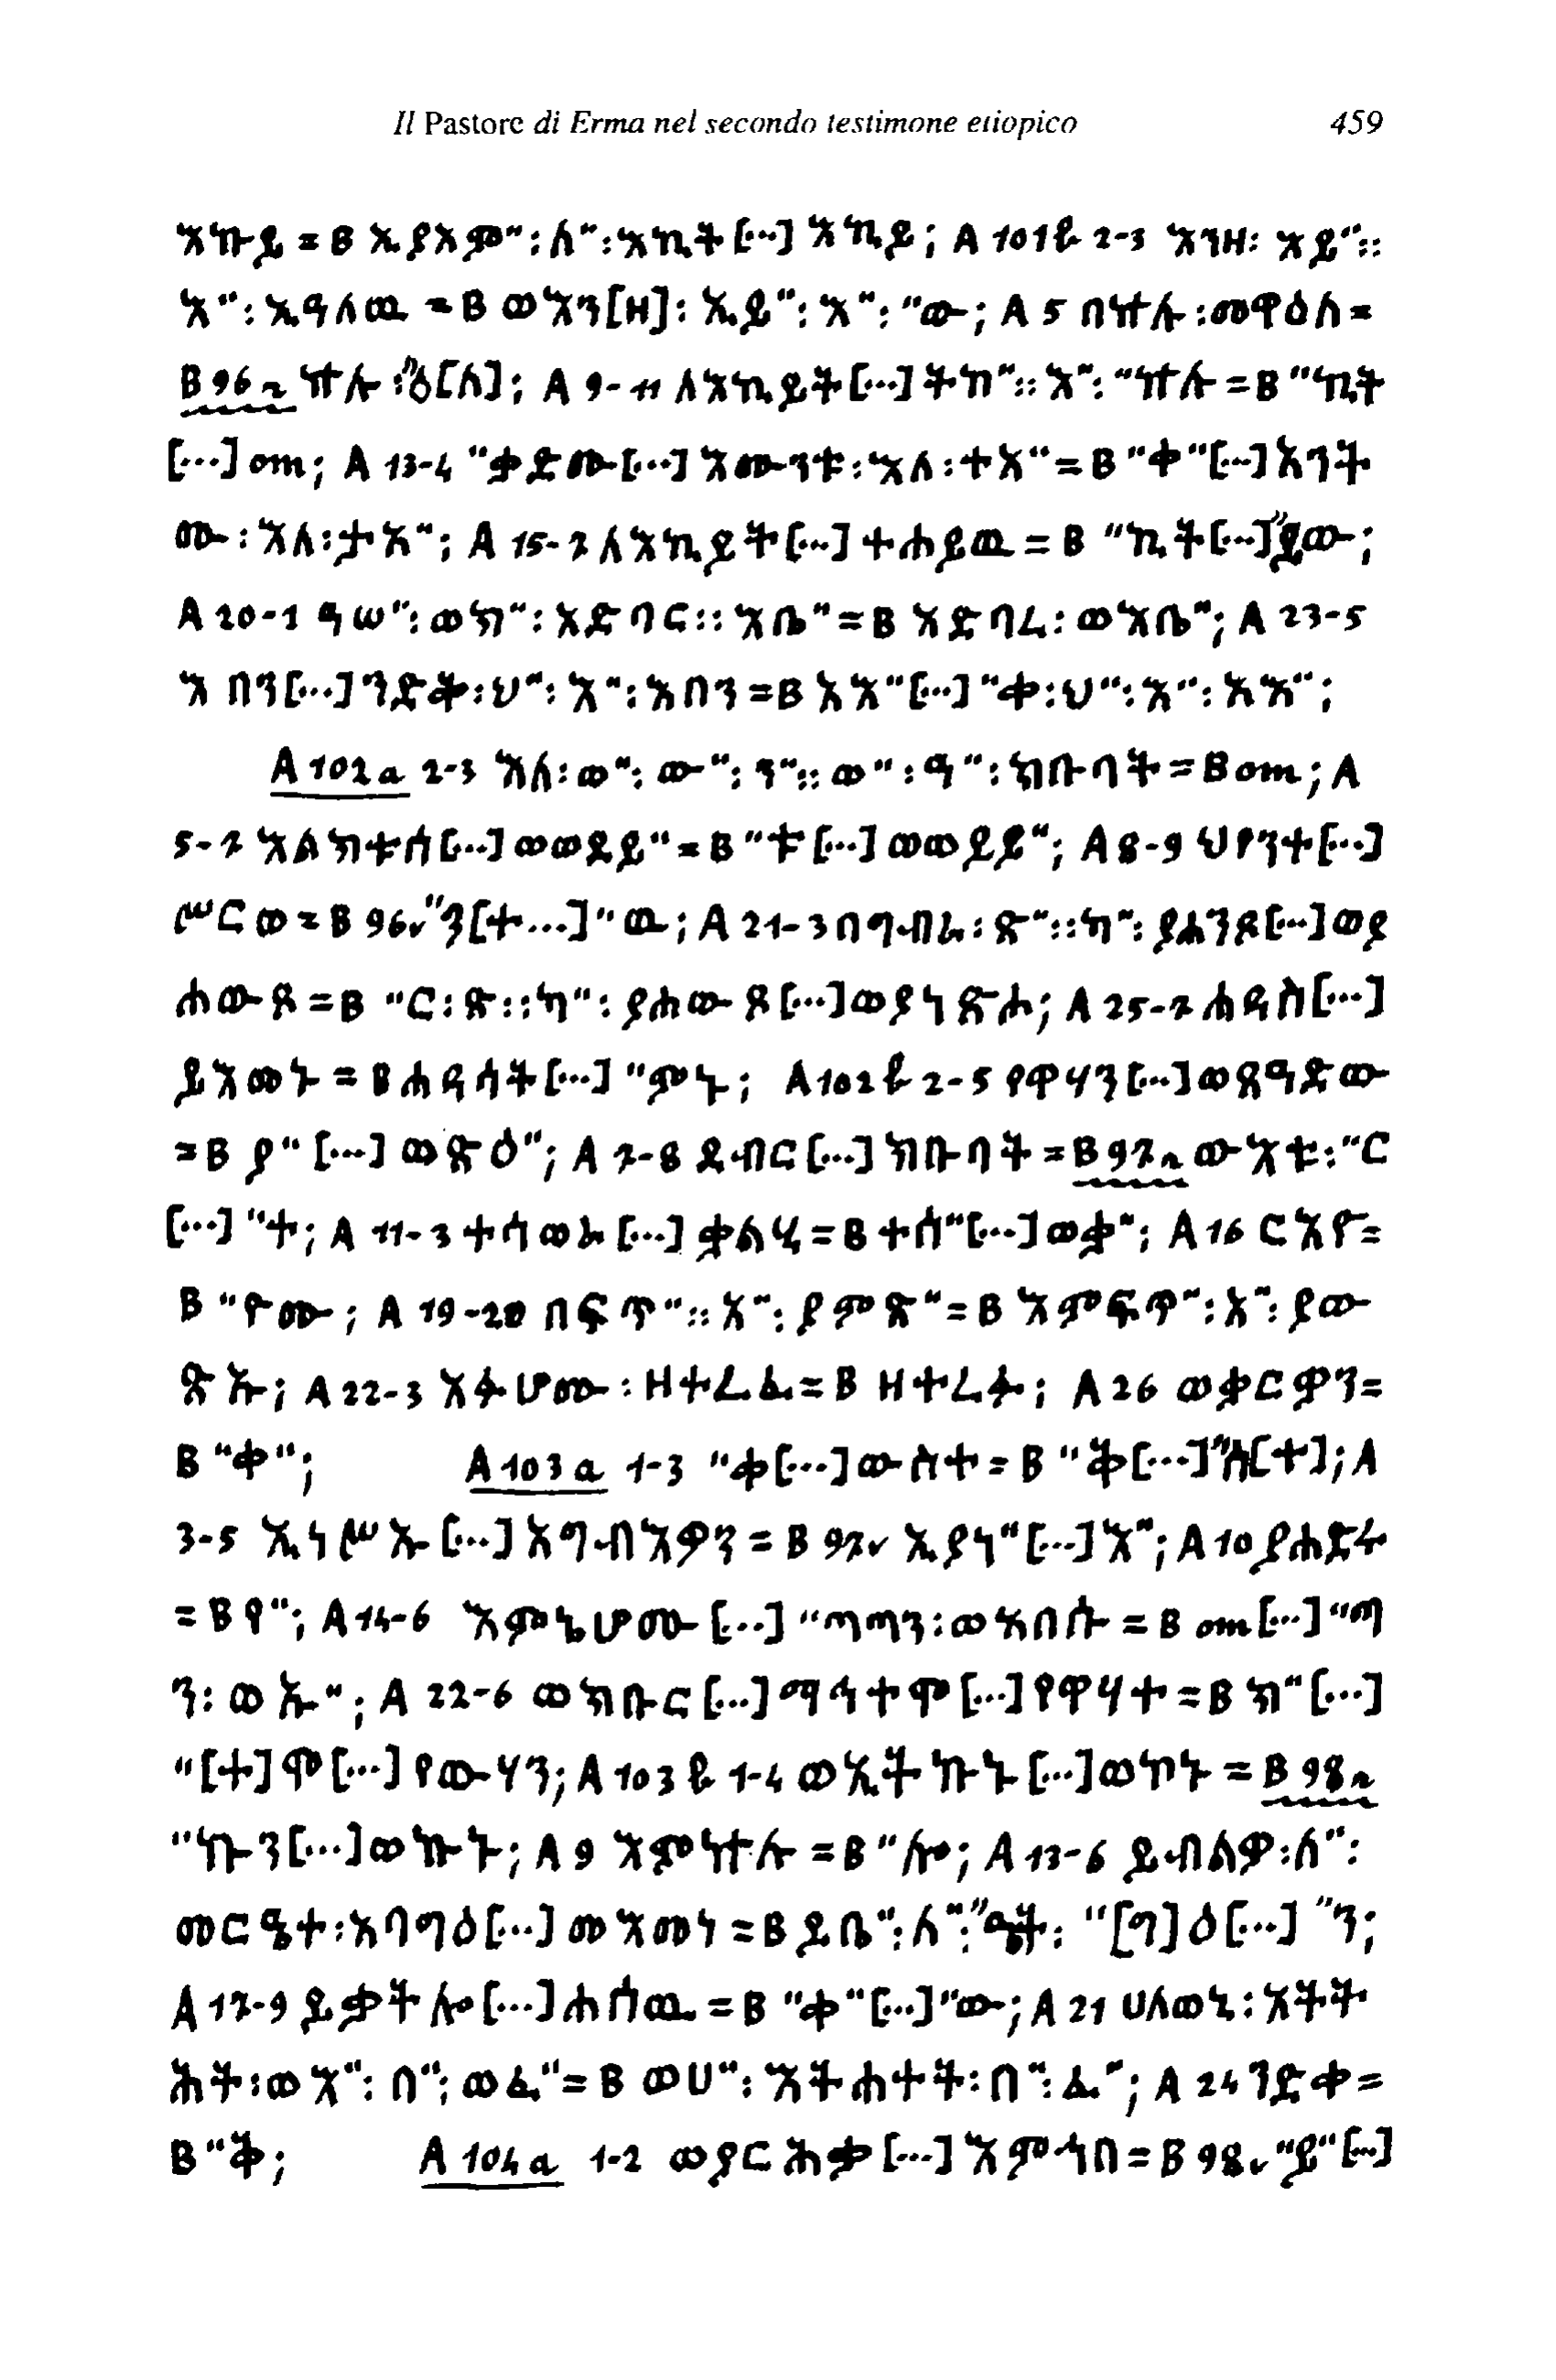 Il Pastore di Erma nel secondo testimone etiopico 459
እኩይ = B ኢያእም" : ለ" : እኪት [...] እኪይ ; A 101b 2-3 እንዘ: እይ" ::
እ" : ኢዓለዉ = B ወእን[ዘ] : ኢይ" : እ" : "ው ; A 5 በኵሉ : መዋዕለ =
B 96r ኵሉ : "ዕ[ለ] ; A 9-11 ለእኪይት [...] ትከ" :: እ" : "ኵሉ = B "ኪት
[...] om ; A 13-4 "ቃድሙ [...] እሙንቱ : እለ : ተአ" = B "ቀ" [...] አንት
ሙ : እለ : ታአ" ; A 15-7 ለእኪይት [...] ተሐይዉ = B "ኪት [...] "ይው ;
A 20-1 ዓወ" : ወክ" : አድባር :: እቤ" = B አድባረ : ወእቤ" ; A 23-5
እበን [...] ንድቅ : ህ" : እ" : አበን = B አእ" [...] "ቀ : ህ" : እ" : አእ" ;
A 102a 2-3 እለ : ወ" : ው" : ን" :: ወ" : ዓ" : ክቡባት = B om ; A
5-7 እልክቱሰ [...] ወወደይ" = B "ቱ [...] ወወደይ" ; A 8-9 ህየንተ [...]
ሠርወ = B 96v "ን[ተ...] "ዉ ; A 21-3 በግብረ : ጽ" :: ከ" : ያሐንጸ [...] ወያ
ሐውጸ = B "ር : ጽ :: ከ" : ያሐውጸ [...] ወያነጽሐ ; A 25-7 ሐዳስ [...]
ይእመኑ = B ሐዳሳት [...] "ምኑ ; A 102b 2-5 የዋሃን [...] ወጸዓድው
= B ያ" [...] ወጽዕ" ; A 7-8 ደብር [...] ክቡባት = B 97r ውእቱ : "ር
[...] "ተ ; A 11-3 ተሰወሩ [...] ቃልሂ = B ተሰ" [...] ወቃ" ; A 16 ርእዮ =
B "ዮሙ ; A 19-20 በፍጥ" :: አ" : ያምጽ" = B እምፍጥ" : አ" : ያው
ጽኡ ; A 22-3 አፉሆሙ : ዘተረፈ = B ዘተረፉ ; A 26 ወቃርዋን =
B "ቀ" ; A 103a 1-3 "ቀ [...] ውስተ = B "ቅ [...] "ስ[ተ] ; A
3-5 ኢነሥኡ [...] አግብእዎን = B 97v ኢያነ" [...] እ" ; A 10 ያሐድሩ
= B የ" ; A 14-6 እምኔሆሙ [...] "ጣጣን : ወአበሱ = B om [...] "ጣ
ን : ወኡ" ; A 22-6 ወክቡር [...] ማኅተም [...] የዋሃተ = B ክ" [...]
"[ተ]ም [...] የውሃን ; A 103b 1-4 ወኢትኩኑ [...] ወከኑ = B 98r
"ኩን [...] ወኩኑ ; A 9 እምኵሉ = B "ሎ ; A 13-6 ይብልዎ : ለ" :
መርዔተ : አባግዕ [...] መእመነ = B ይቤ" : ለ" : "ዔት : "[ግ]ዕ [...] "ን ;
A 17-9 ይቃትሎ [...] ሐሰዉ = B "ቀ" [...] "ው ; A 21 ሀለወኒ : እትት
ሕት : ወእ" : በ" : ወፈ" = B ወሀ" : እትሐተት : በ" : ፈ" ; A 24 ንድቀ =
B "ቅ ; A 104a 1-2 ወያርሕቃ [...] እምኅበ = B 98v "ይ" [...]